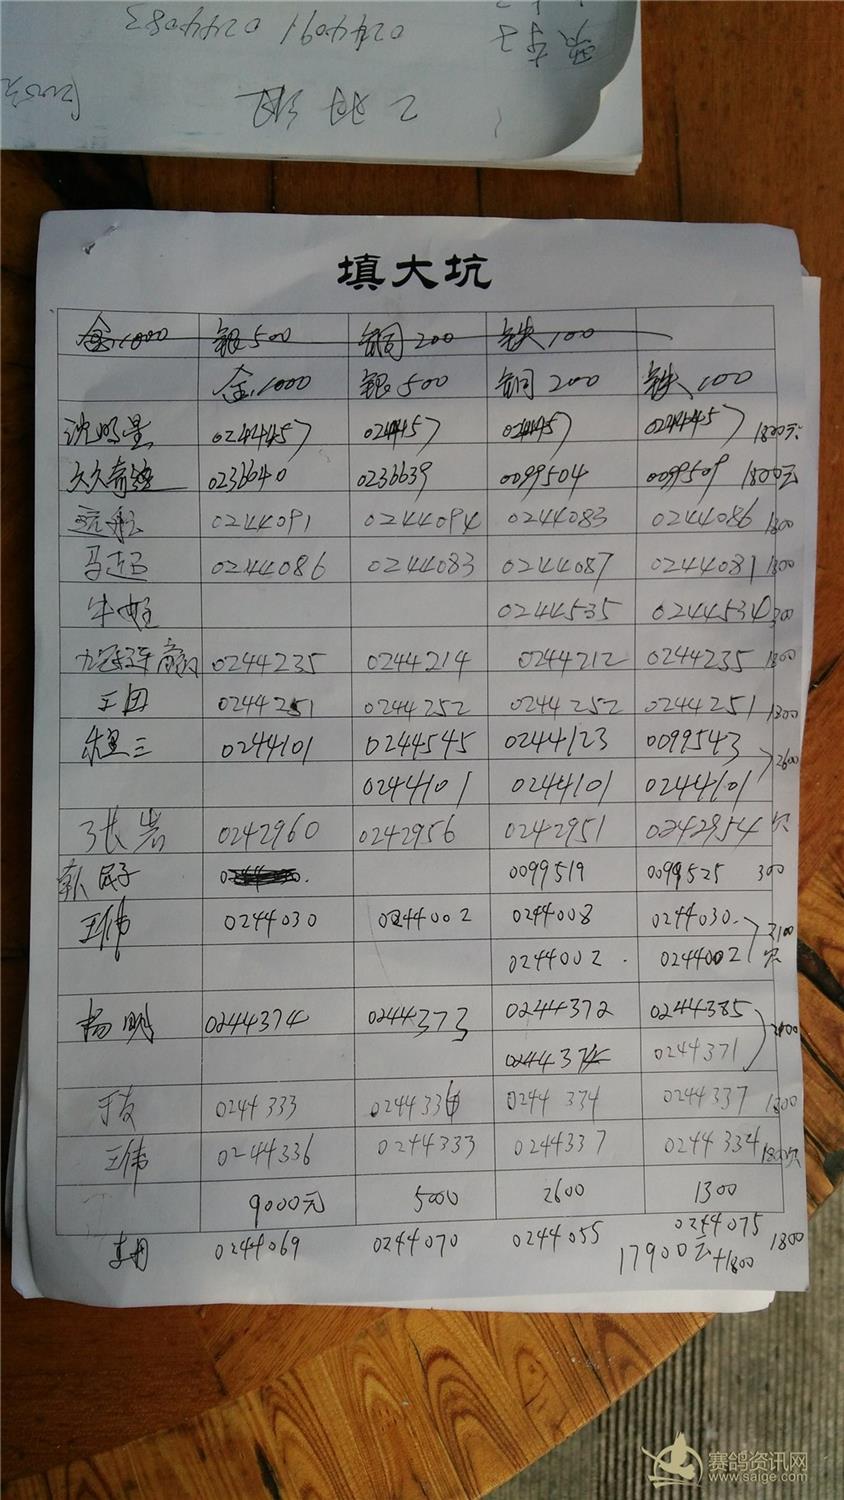 0244091 0244083
填大坑
金1000 银500 铜200 铁100
金1000 银500 铜200 铁100
沈明星 0244457 0244457 0244457 0244457 1800元
久久奇迹 0236640 0236639 0099504 0099509 1800元
远航 0244091 0244094 0244083 0244086 1800
马超 0244086 0244083 0244087 0244081 1800
0244535 0244534 300
九冠连赢 0244235 0244214 0244212 0244235 1800
王团 0244251 0244252 0244252 0244251 1800
0244101 0244545 0244123 0099543 2600
0244101 0244101 0244101
张岩 0242960 0242956 0242951 0242954 欠
0099519 0099525 300
王伟 0244030 0244002 0244008 0244030 2100
0244002 0244002 欠
杨明 0244374 0244373 0244372 0244385
0244374 0244371
于友 0244333 0244336 0244334 0244337 1800
王伟 0244336 0244333 0244337 0244334 1800欠
9000元 5000 2600 1300
0244069 0244070 0244055 0244075 1800
17900元+1800
赛鸽资讯网
www.saige.com